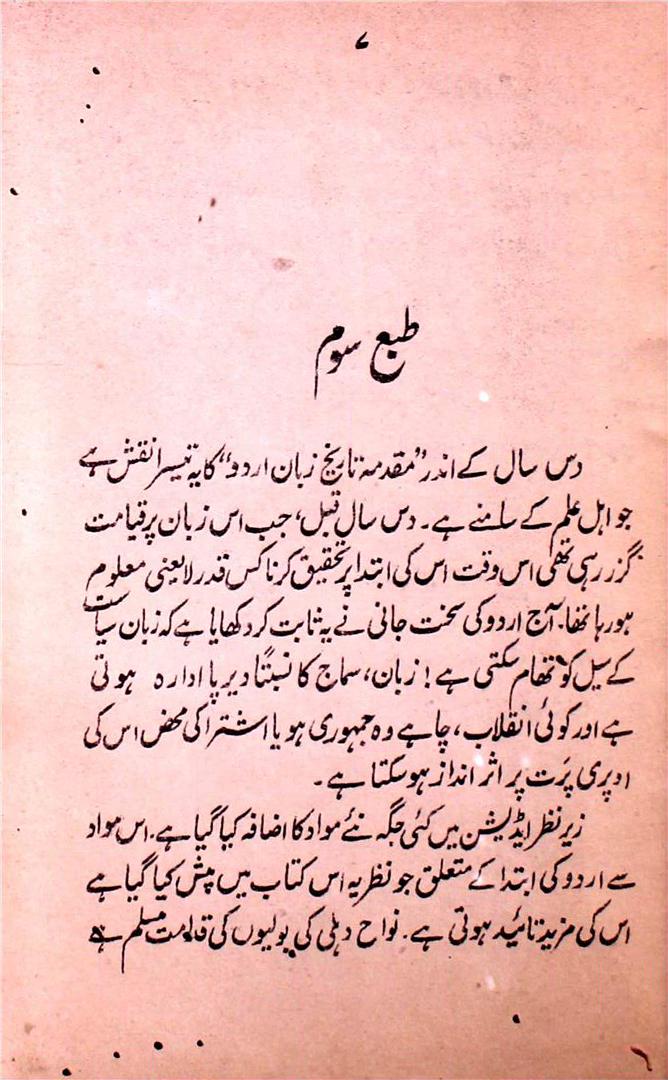 ۷
طبع سوم
دس سال کے اندر "مقدمۂ تاریخ زبان اردو" کا یہ تیسرا نقش ہے
جو اہل علم کے سامنے ہے۔ دس سال قبل، جب اس زبان پر قیامت
گزر رہی تھی اس وقت اس کی ابتدا پر تحقیق کرنا کس قدر لایعنی معلوم
ہو رہا تھا۔ آج اردو کی سخت جانی نے یہ ثابت کر دکھایا ہے کہ زبان سیاست
کے سیل کو تھام سکتی ہے! زبان، سماج کا نسبتاً دیرپا ادارہ ہوتی
ہے اور کوئی انقلاب، چاہے وہ جمہوری ہو یا اشتراکی محض اس کی
اوپری پَرت پر اثر انداز ہو سکتا ہے۔
زیر نظر ایڈیشن میں کئی جگہ نئے مواد کا اضافہ کیا گیا ہے۔ اس مواد
سے اردو کی ابتدا کے متعلق جو نظریہ اس کتاب میں پیش کیا گیا ہے
اس کی مزید تائید ہوتی ہے۔ نواح دہلی کی بولیوں کی قدامت مسلم ہے